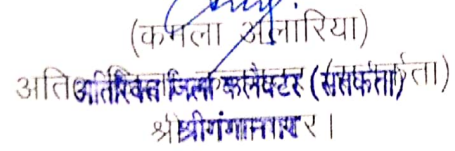 (कमला अलारिया)
अतिरिक्त जिला कलैक्टर (सतर्कता)
श्रीगंगानगर।